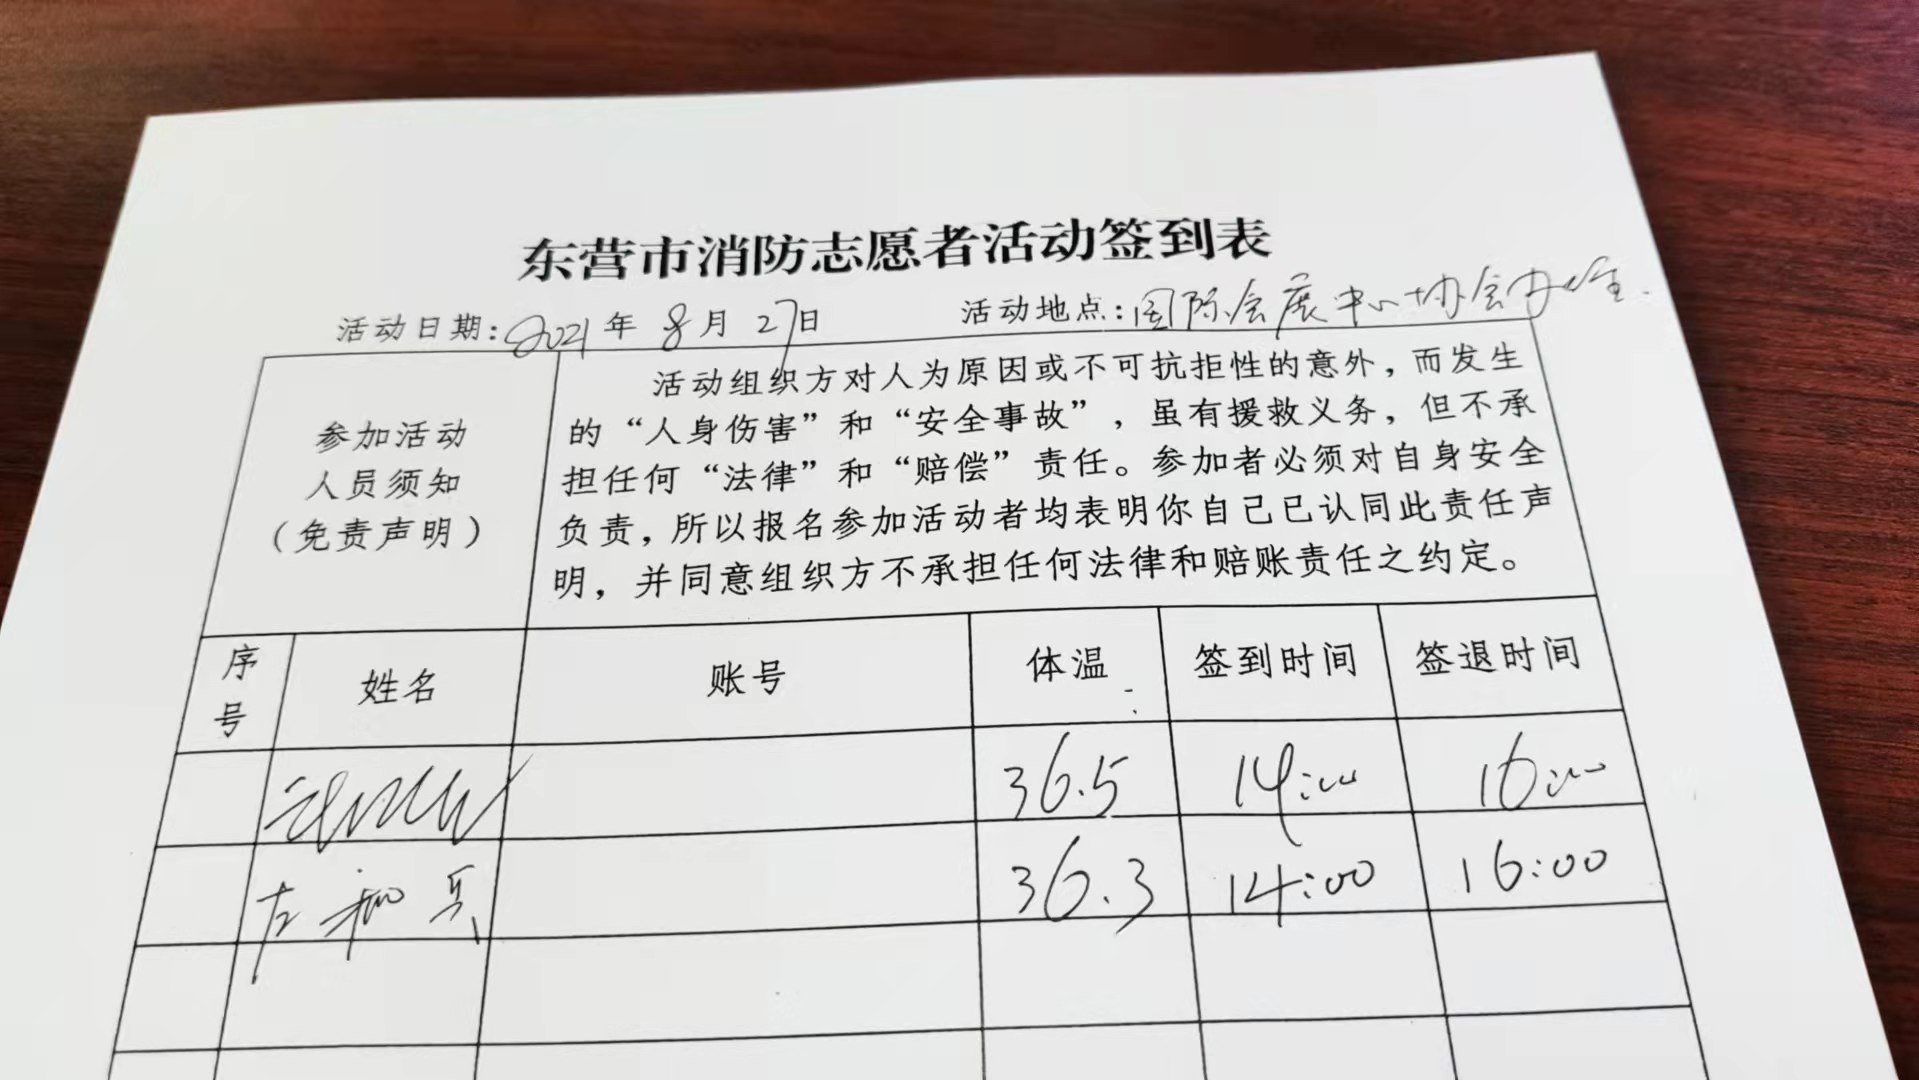 东营市消防志愿者活动签到表
活动日期:2021年 8月 27日 活动地点:国际会展中心协会办公室
参加活动
人员须知
(免责声明)
活动组织方对人为原因或不可抗拒性的意外，而发生
的“人身伤害”和“安全事故”，虽有援救义务，但不承
担任何“法律”和“赔偿”责任。参加者必须对自身安全
负责，所以报名参加活动者均表明你自己已认同此责任声
明，并同意组织方不承担任何法律和赔账责任之约定。
序号 姓名 账号 体温 签到时间 签退时间
36.5 14:00 16:00
36.3 14:00 16:00